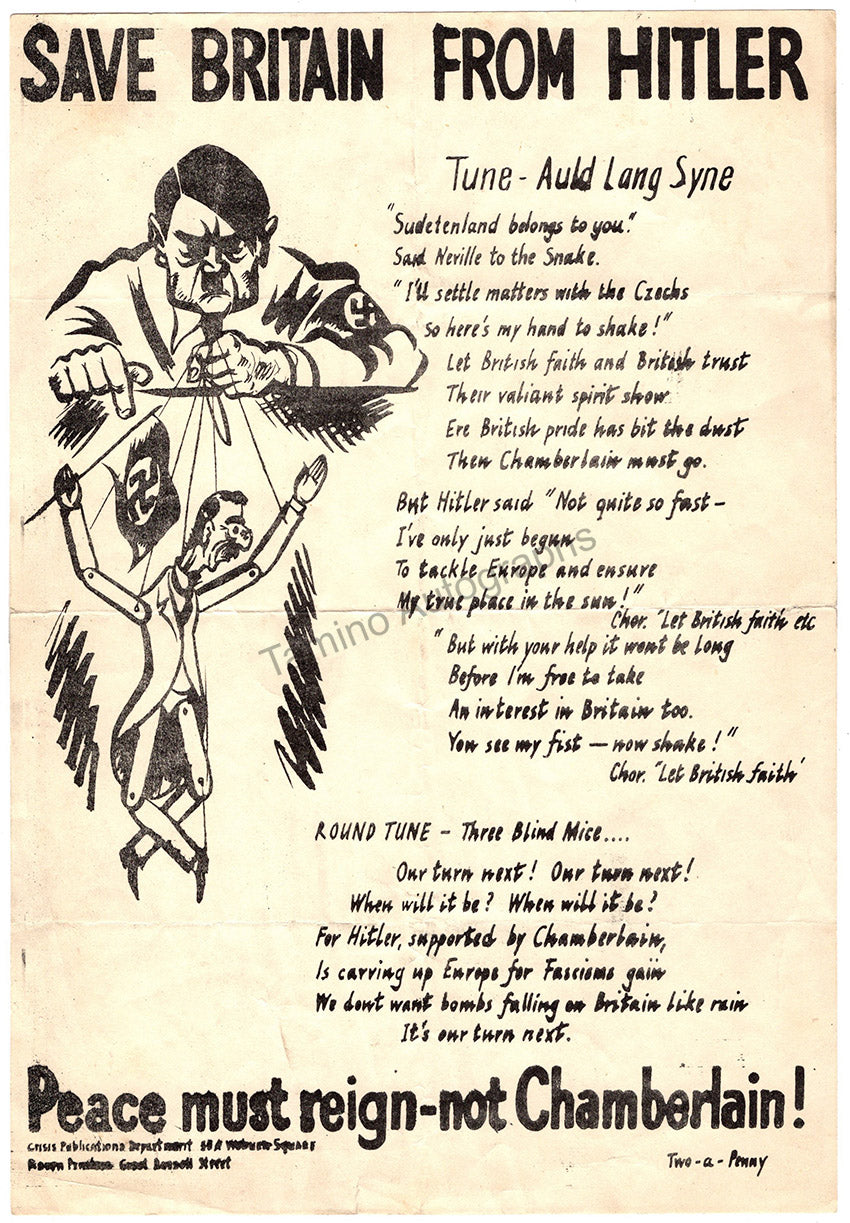 SAVE BRITAIN FROM HITLER
Tune - Auld Lang Syne
"Sudetenland belongs to you."
Said Neville to the Snake.
"I'll settle matters with the Czechs
So here's my hand to shake!"
Let British faith and British trust
Their valiant spirit show
Ere British pride has bit the dust
Then Chamberlain must go.
But Hitler said "Not quite so fast -
I've only just begun
To tackle Europe and ensure
My true place in the sun!"
Chor. "Let British faith etc
"But with your help it wont be long
Before I'm free to take
An interest in Britain too.
You see my fist — now shake!"
Chor. "Let British faith'
ROUND TUNE - Three Blind Mice....
Our turn next! Our turn next!
When will it be? When will it be?
For Hitler, supported by Chamberlain,
Is carving up Europe for Fascisms gain
We dont want bombs falling on Britain like rain
It's our turn next.
Peace must reign-not Chamberlain!
Crisis Publications Department Woburn Square
Russell Street
Two-a-Penny
Tamino Autographs